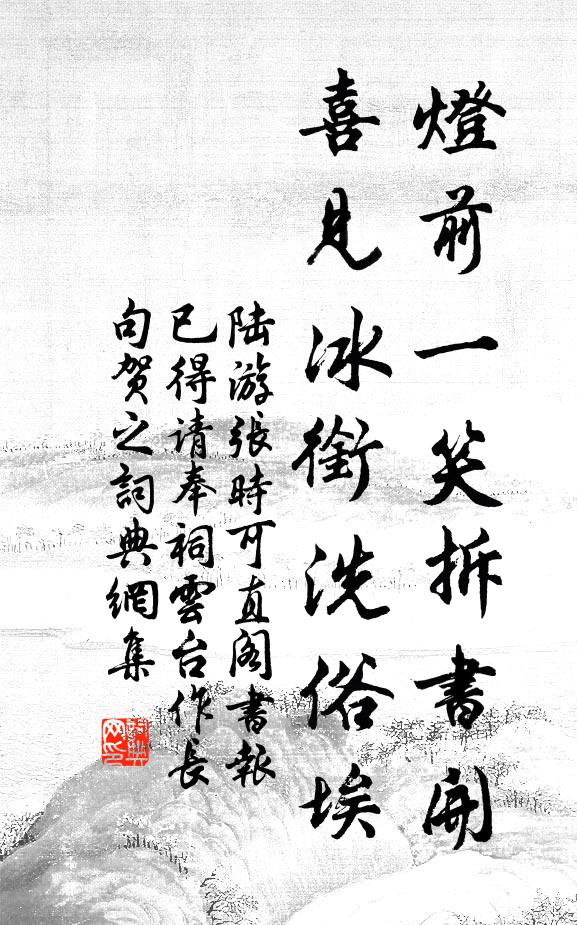 燈前一笑拆書開
喜見冰銜洗俗埃
陆游張時可直阁書報
已得请奉祠雲台作長
句贺之詞典網集